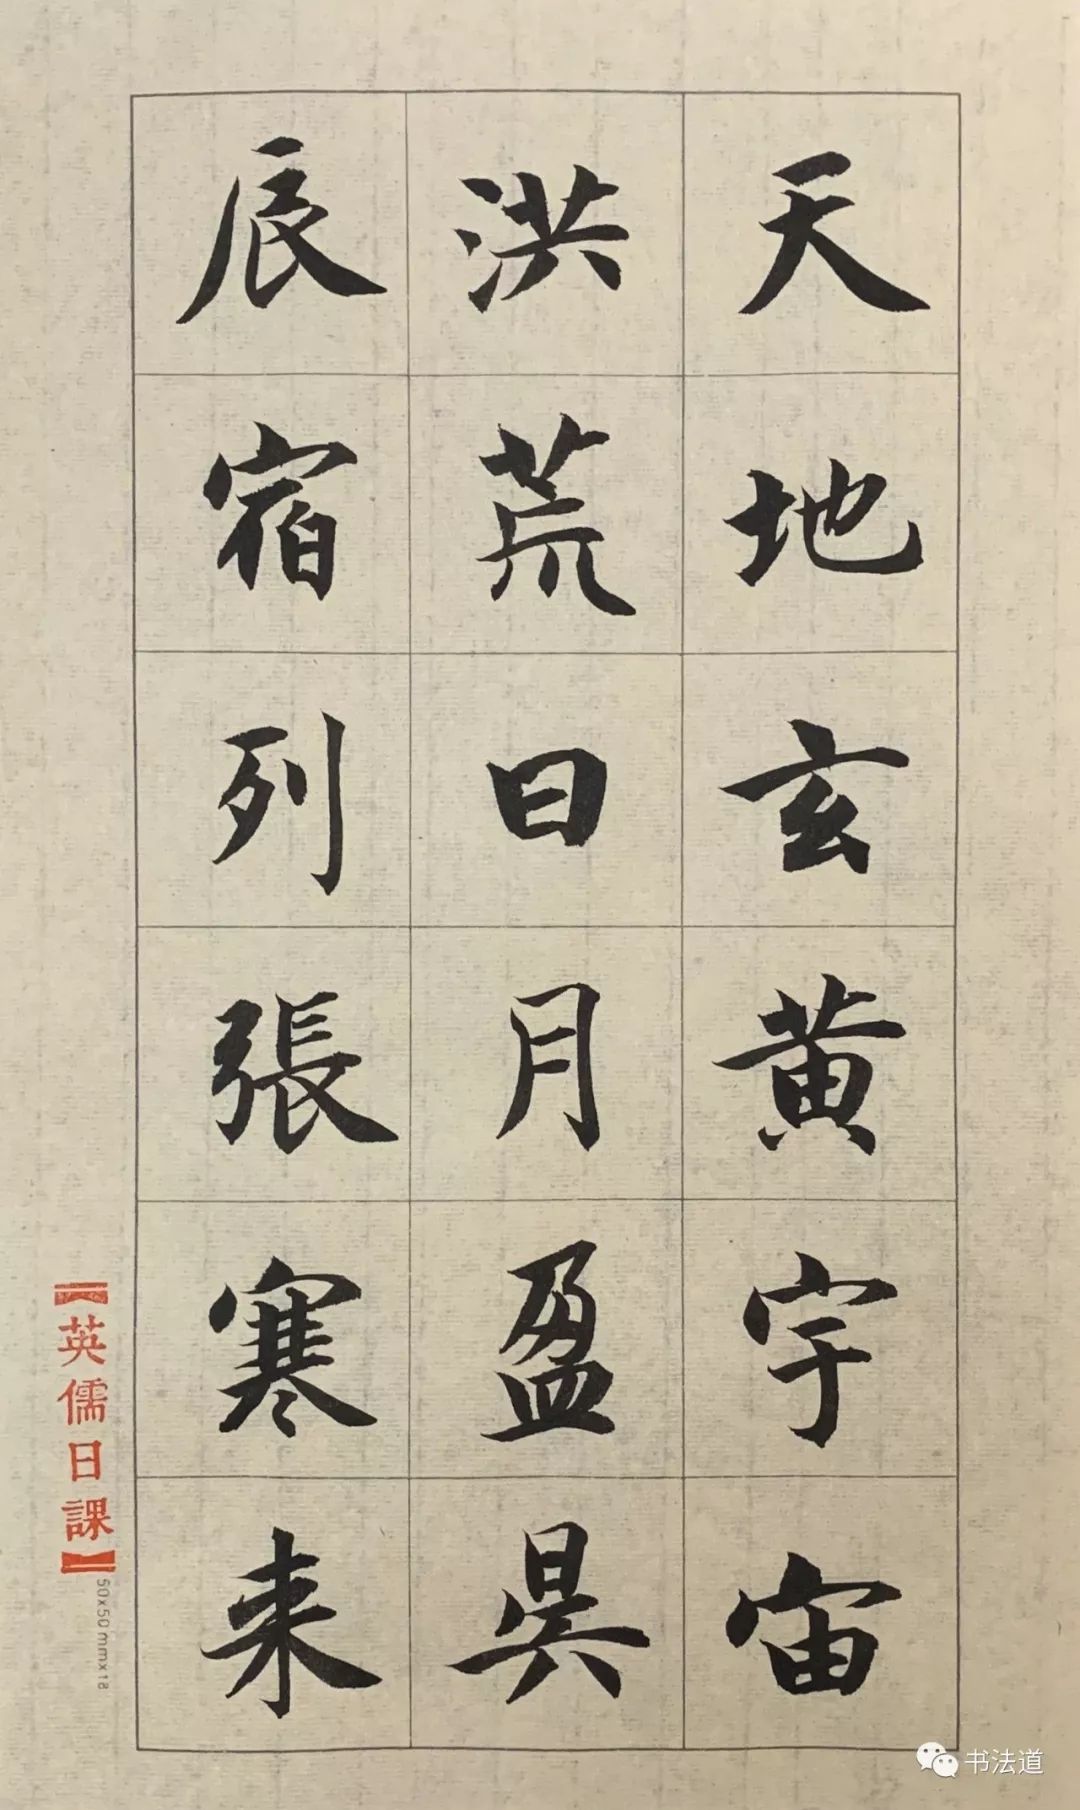 天地玄黄宇宙
洪荒日月盈昃
辰宿列張寒来
【英儒日課】
50x50mmx18
书法道